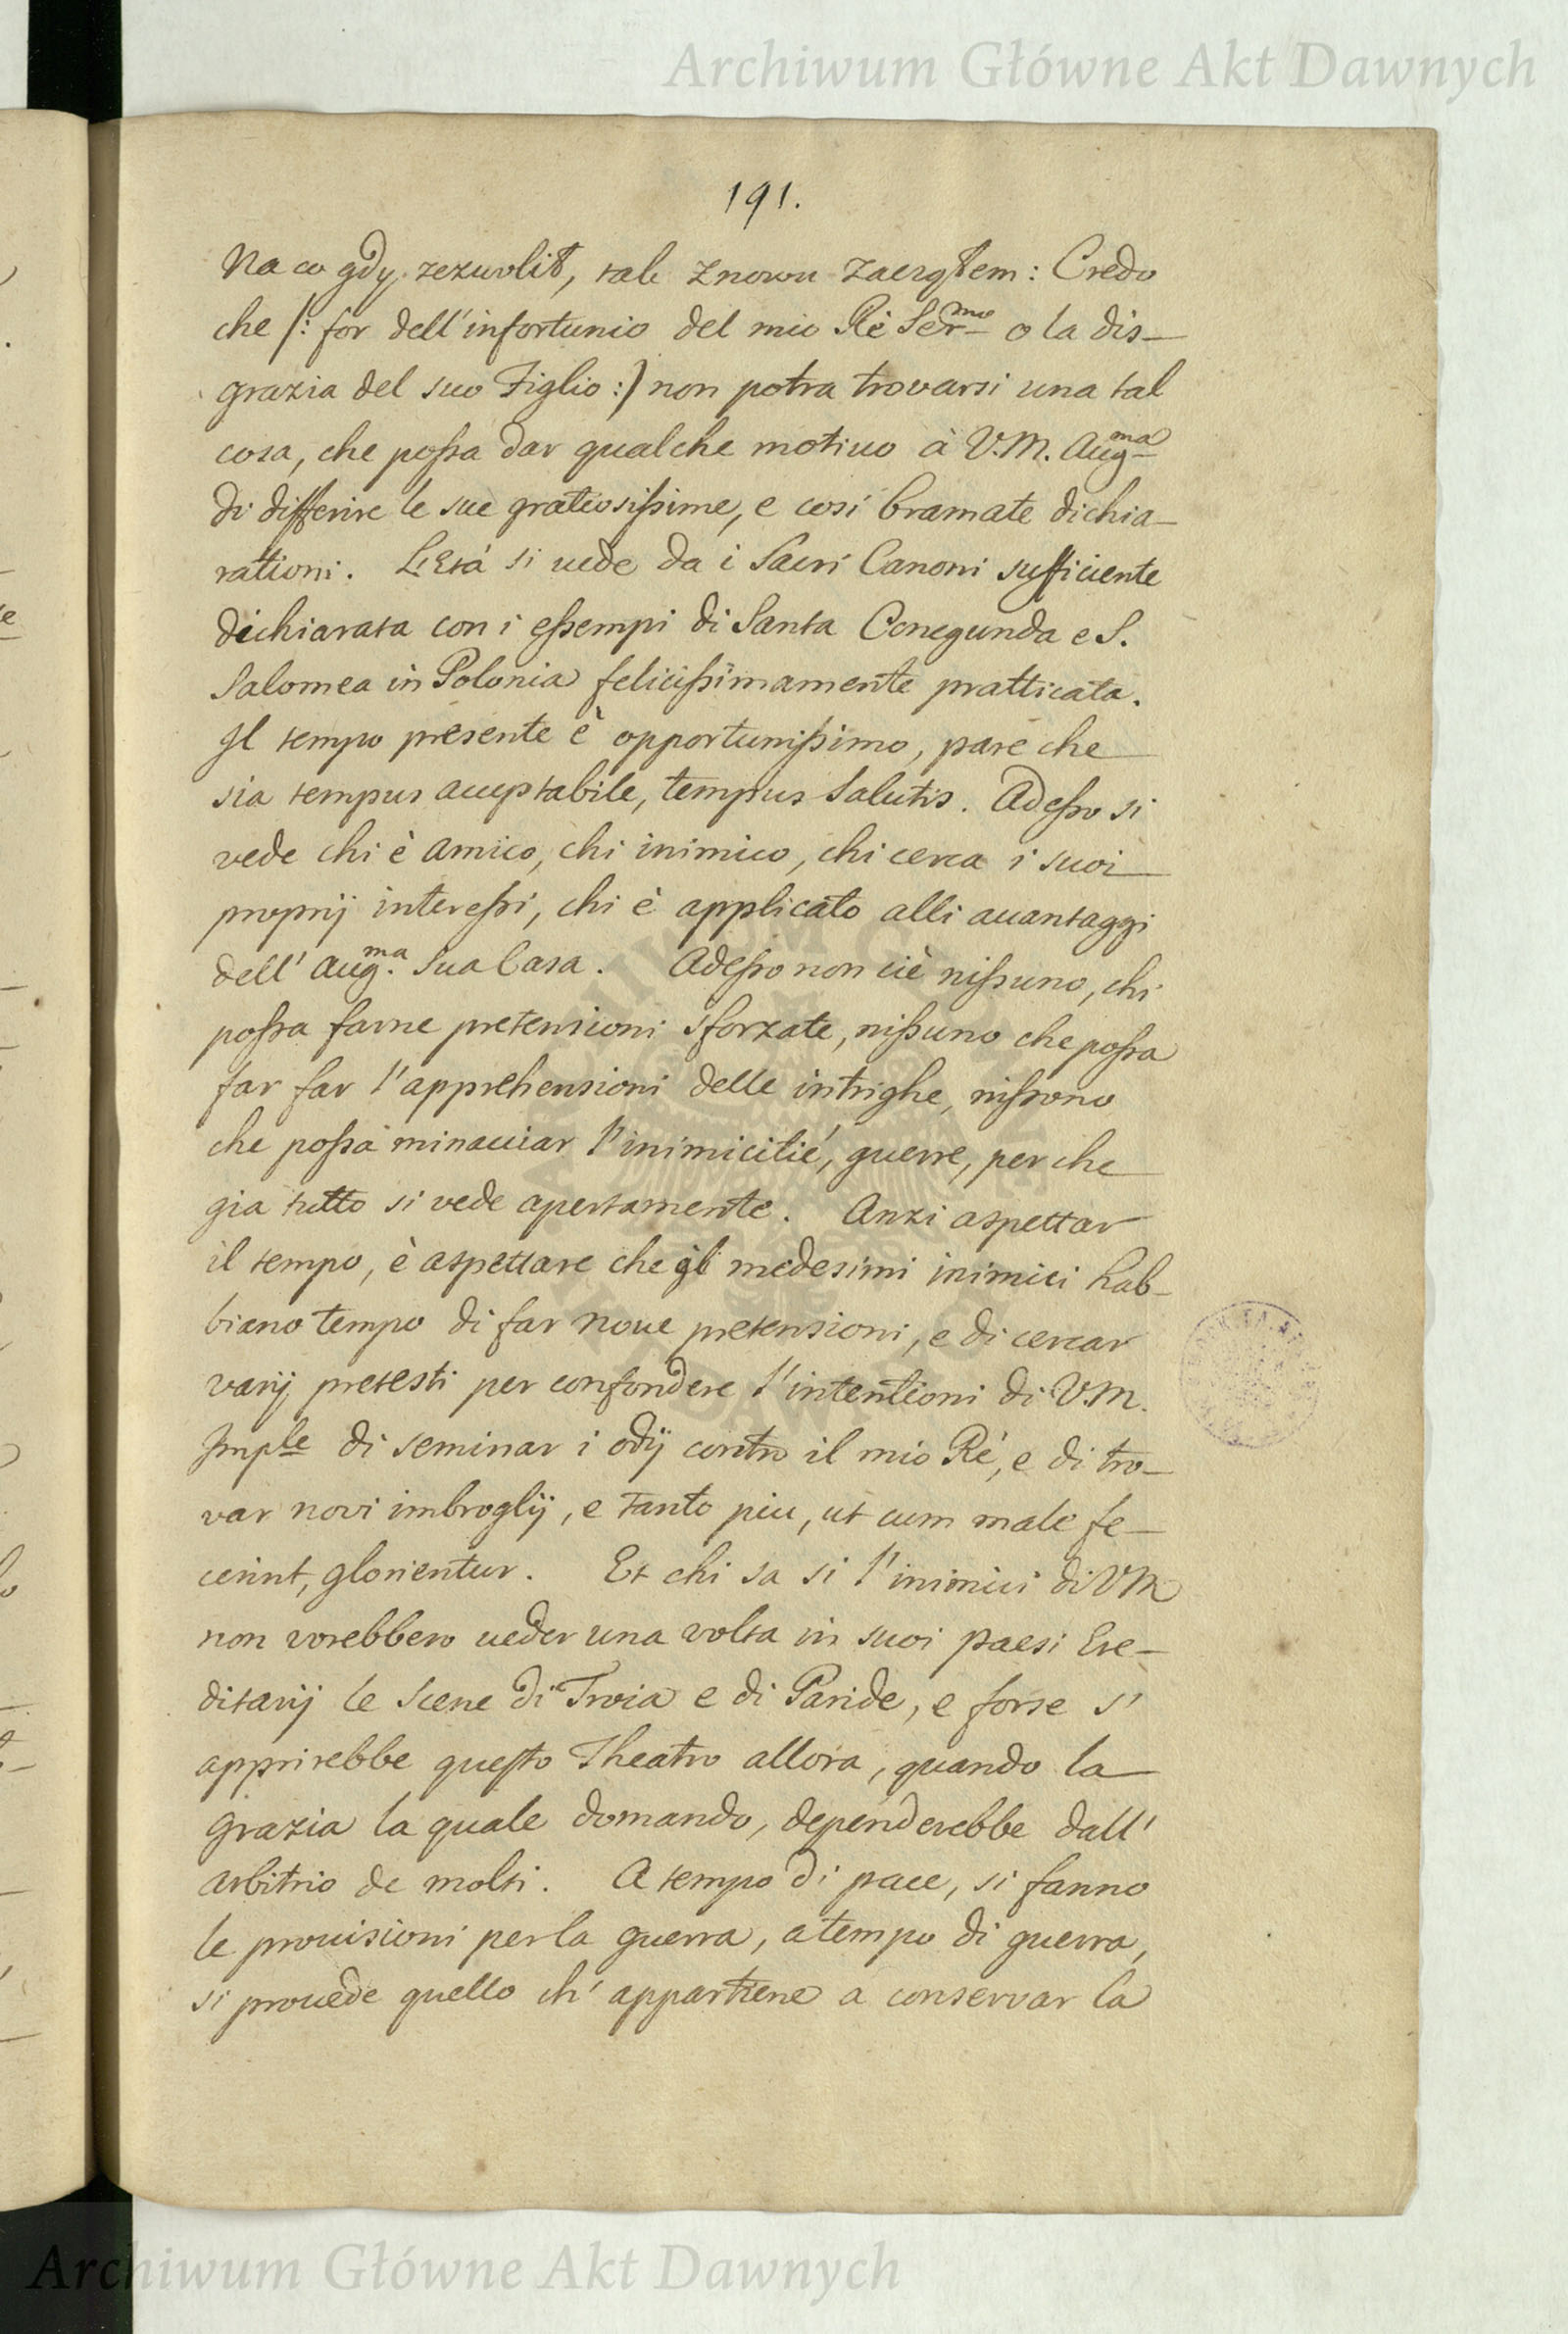 Archiwum Główne Akt Dawnych
191.
Na co gdy zezwolił, tak znowu zacząłem: Credo
che /: for dell'infortunio del mio Rè Ser.mo o la dis–
grazia del suo Figlio :/ non potra trovarsi una tal
cosa, che possa dar qualche motiuo à V.M. Aug.ma
di differire le sue gratiosissime, e cosi bramate dichia–
rationi. L'Età si uede da i Sacri Canoni sufficiente
dichiarata con i essempi di Santa Conegunda e S.
Salomea in Polonia felicissimamente pratticata.
Il tempo presente è opportunissimo, pare che
sia tempus acceptabile, tempus Salutis. Adesso si
vede chi è amico, chi inimico, chi cerca i suoi
proprij interessi, chi è applicato alli auantaggi
dell' Aug.ma Sua Casa. Adesso non ciè nissuno, chi
possa farne pretensioni sforzate, nissuno che possa
far far l'apprehensioni delle intrighe, nissono
che possa minacciar l'inimicitié, guerre, per che
gia tutto si vede apertamente. Anzi aspettar
il tempo, è aspettare che gli medesimi inimici hab–
biano tempo di far noue pretensioni, e di cercar
varij pretesti per confondere l'intentioni di V.M.
Imp.le di seminar i odij contro il mio Rè, e di tro–
var novi imbroglij, e tanto piu, ut cum male fe–
cerint, glorientur. Et chi sa si l'inimici di VM
non vorebbero ueder una volta in suoi paesi Ere–
ditarij le Scene di Troia e di Paride, e forse s'
apprirebbe questo Theatro allora, quando la
grazia la quale domando, dependerebbe dall'
arbitrio de molti. A tempo di pace, si fanno
le prouisioni per la guerra, a tempo di guerra,
si prouede quello ch' appartiene a conservar la
Archiwum Główne Akt Dawnych